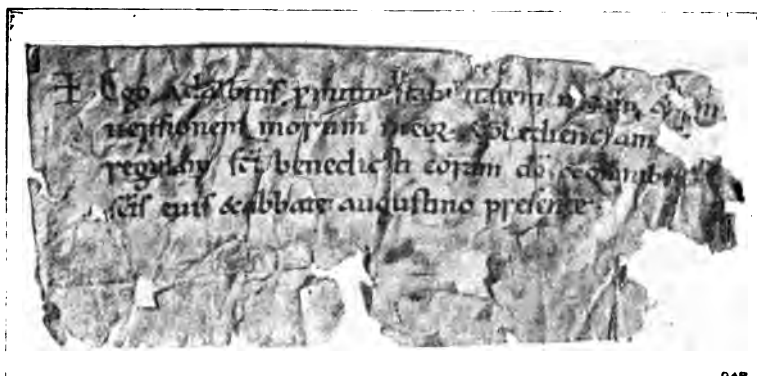 ✝ Ego Adalbertus promitto stabilitatem meam & con
uersionem morum meorum & obedienciam
regulam sci benedicti coram do & omnibus
scis eius & abbate augustino presente.